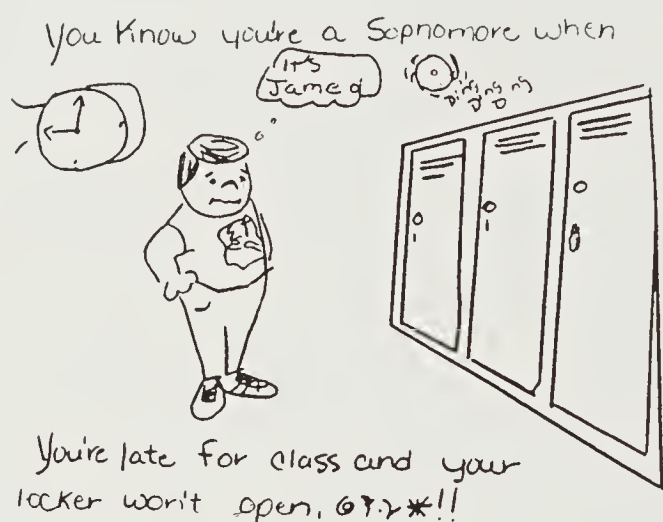 You Know you're a Sopnomore when
IT'S
Jamed
Ding Ding Ding
You're late for class and your
locker won't open, @?.?*!!